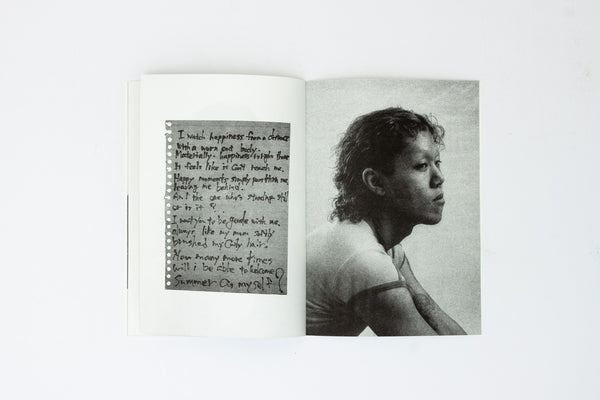 I watch happiness from a distance
with a worn out body.
Materially. happiness is right there
It feels like it can't reach me.
Happy moments simply pass me
leaving me behind.
Am I the one who's standing still
or is it
I want you to be gentle with me.
always, like my mom softly
brushed my curly hair!
How many more times
will i be able to welcome
Summer as myself?